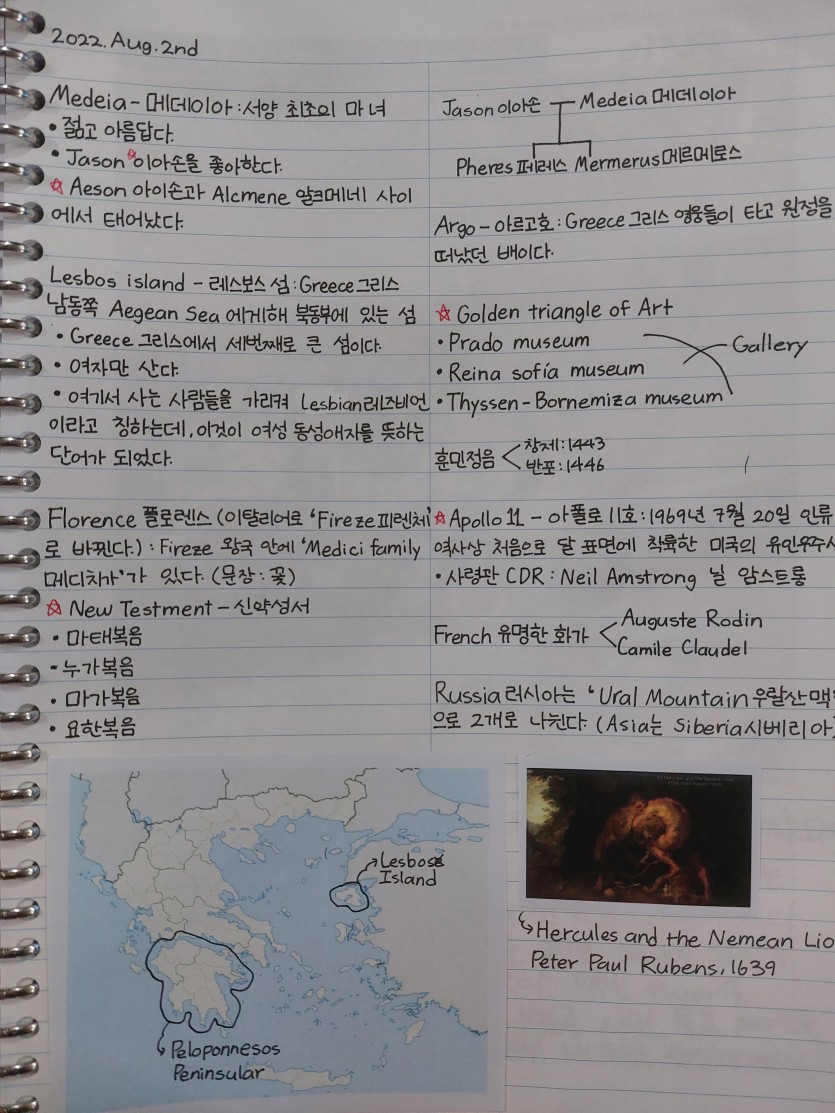 2022. Aug. 2nd
Medeia - 메데이아 : 서양 최초의 마녀
• 젊고 아름답다.
• Jason☆이아손을 좋아한다.
☆ Aeson 아이손과 Alcmene 알크메네 사이
에서 태어났다.
Lesbos island - 레스보스 섬 : Greece 그리스
남동쪽 Aegean Sea 에게해 북동부에 있는 섬
• Greece 그리스에서 세번째로 큰 섬이다.
• 여자만 산다.
• 여기서 사는 사람들을 가리켜 Lesbian레즈비언
이라고 칭하는데, 이것이 여성 동성애자를 뜻하는
단어가 되었다.
Florence 플로렌스 (이탈리어로 'Fireze 피렌체'
로 바뀐다.) : Fireze 왕국 안에 'Medici family
메디치가'가 있다. (문장 : 꽃)
☆ New Testment - 신약성서
• 마태복음
• 누가복음
• 마가복음
• 요한복음
Jason 이아손 Medeia 메데이아
Pheres 페레스 Mermerus 메르메로스
Argo - 아르고호 : Greece 그리스 영웅들이 타고 원정을
떠났던 배이다.
☆ Golden triangle of Art
• Prado museum
Gallery
• Reina sofía museum
• Thyssen-Bornemiza museum
훈민정음
창제:1443
반포:1446
☆ Apollo 11 - 아폴로 11호 : 1969년 7월 20일 인류
역사상 처음으로 달 표면에 착륙한 미국의 유인우주
• 사령관 CDR : Neil Amstrong 닐 암스트롱
French 유명한 화가
Auguste Rodin
Camile Claudel
Russia 러시아는 'Ural Mountain 우랄산맥
으로 2개로 나뉜다. (Asia는 Siberia시베리아)
Lesbos
Island
Peloponnesos
Peninsular
Hercules and the Nemean Lio
Peter Paul Rubens, 1639